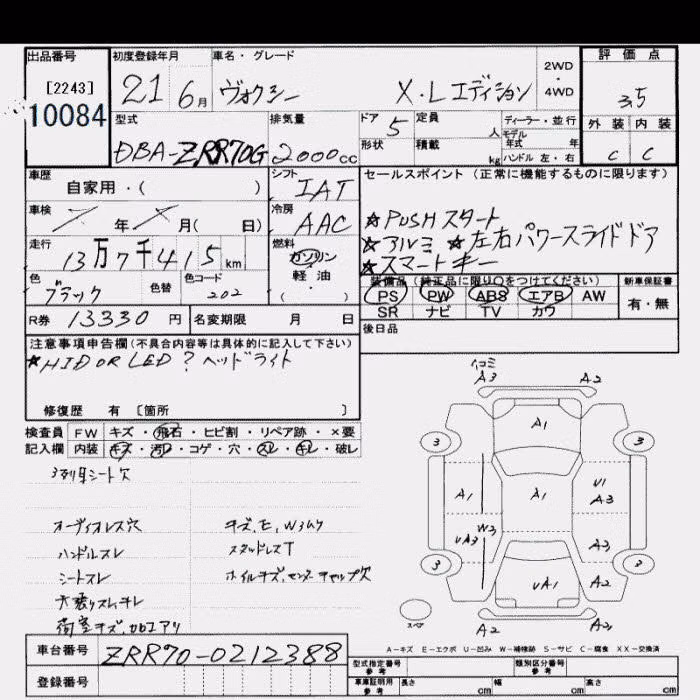 出品番号 初度登録年月 車名・グレード 2WD・4WD 評価点
[2243]
10084
21 6月 ヴォクシー X・Lエディション 3.5
型式 排気量 ドア 5 定員 人 ディーラー・並行
DBA-ZRR70G 2000cc 形状 積載 kg モデル年式 年 ハンドル 左・右
外装 内装
C C
車歴 自家用・( ) シフト IAT
セールスポイント (正常に機能するものに限ります)
車検 年 月( 日) 冷房 AAC
★PUSHスタート
★アルミ ★左右パワースライドドア
★スマートキー
走行 13万7千415km 燃料 ガソリン・軽油・( )
色 ブラック 色替 色コード 202
装備品 (純正品に限り○をつけてください) 新車保証書
PS PW ABS エアB AW 有・無
SR ナビ TV カワ
R券 13330円 名変期限 月 日
後日品
注意事項申告欄(不具合内容等は具体的に記入して下さい)
★HID OR LED? ヘッドライト
修復歴 有 [箇所 ]
検査員 FW キズ・飛石・ヒビ割・リペア跡・×要
記入欄 内装 キズ・汚レ・コゲ・穴・スレ・キレ・破レ
3列目シート欠
オーディオレス穴 キズ、E、W3ムケ
ハンドルスレ スタッドレスT
シートスレ ホイルキズ、センターキャップ欠
荷室キズ、加工アリ
A3 A2
A1
3 3
A1 A1 U1 A3
UA3 W3 A3
3 UA1 A2 3
スペア A2 A2
A-キズ E-エクボ U-凹み W-補修跡 S-サビ C-腐食 XX-交換済
車台番号 ZRR70-0212388
型式指定番号 参考 類別区分番号 参考
登録番号 車庫証明用 参考 長さ cm 幅 cm 高さ cm